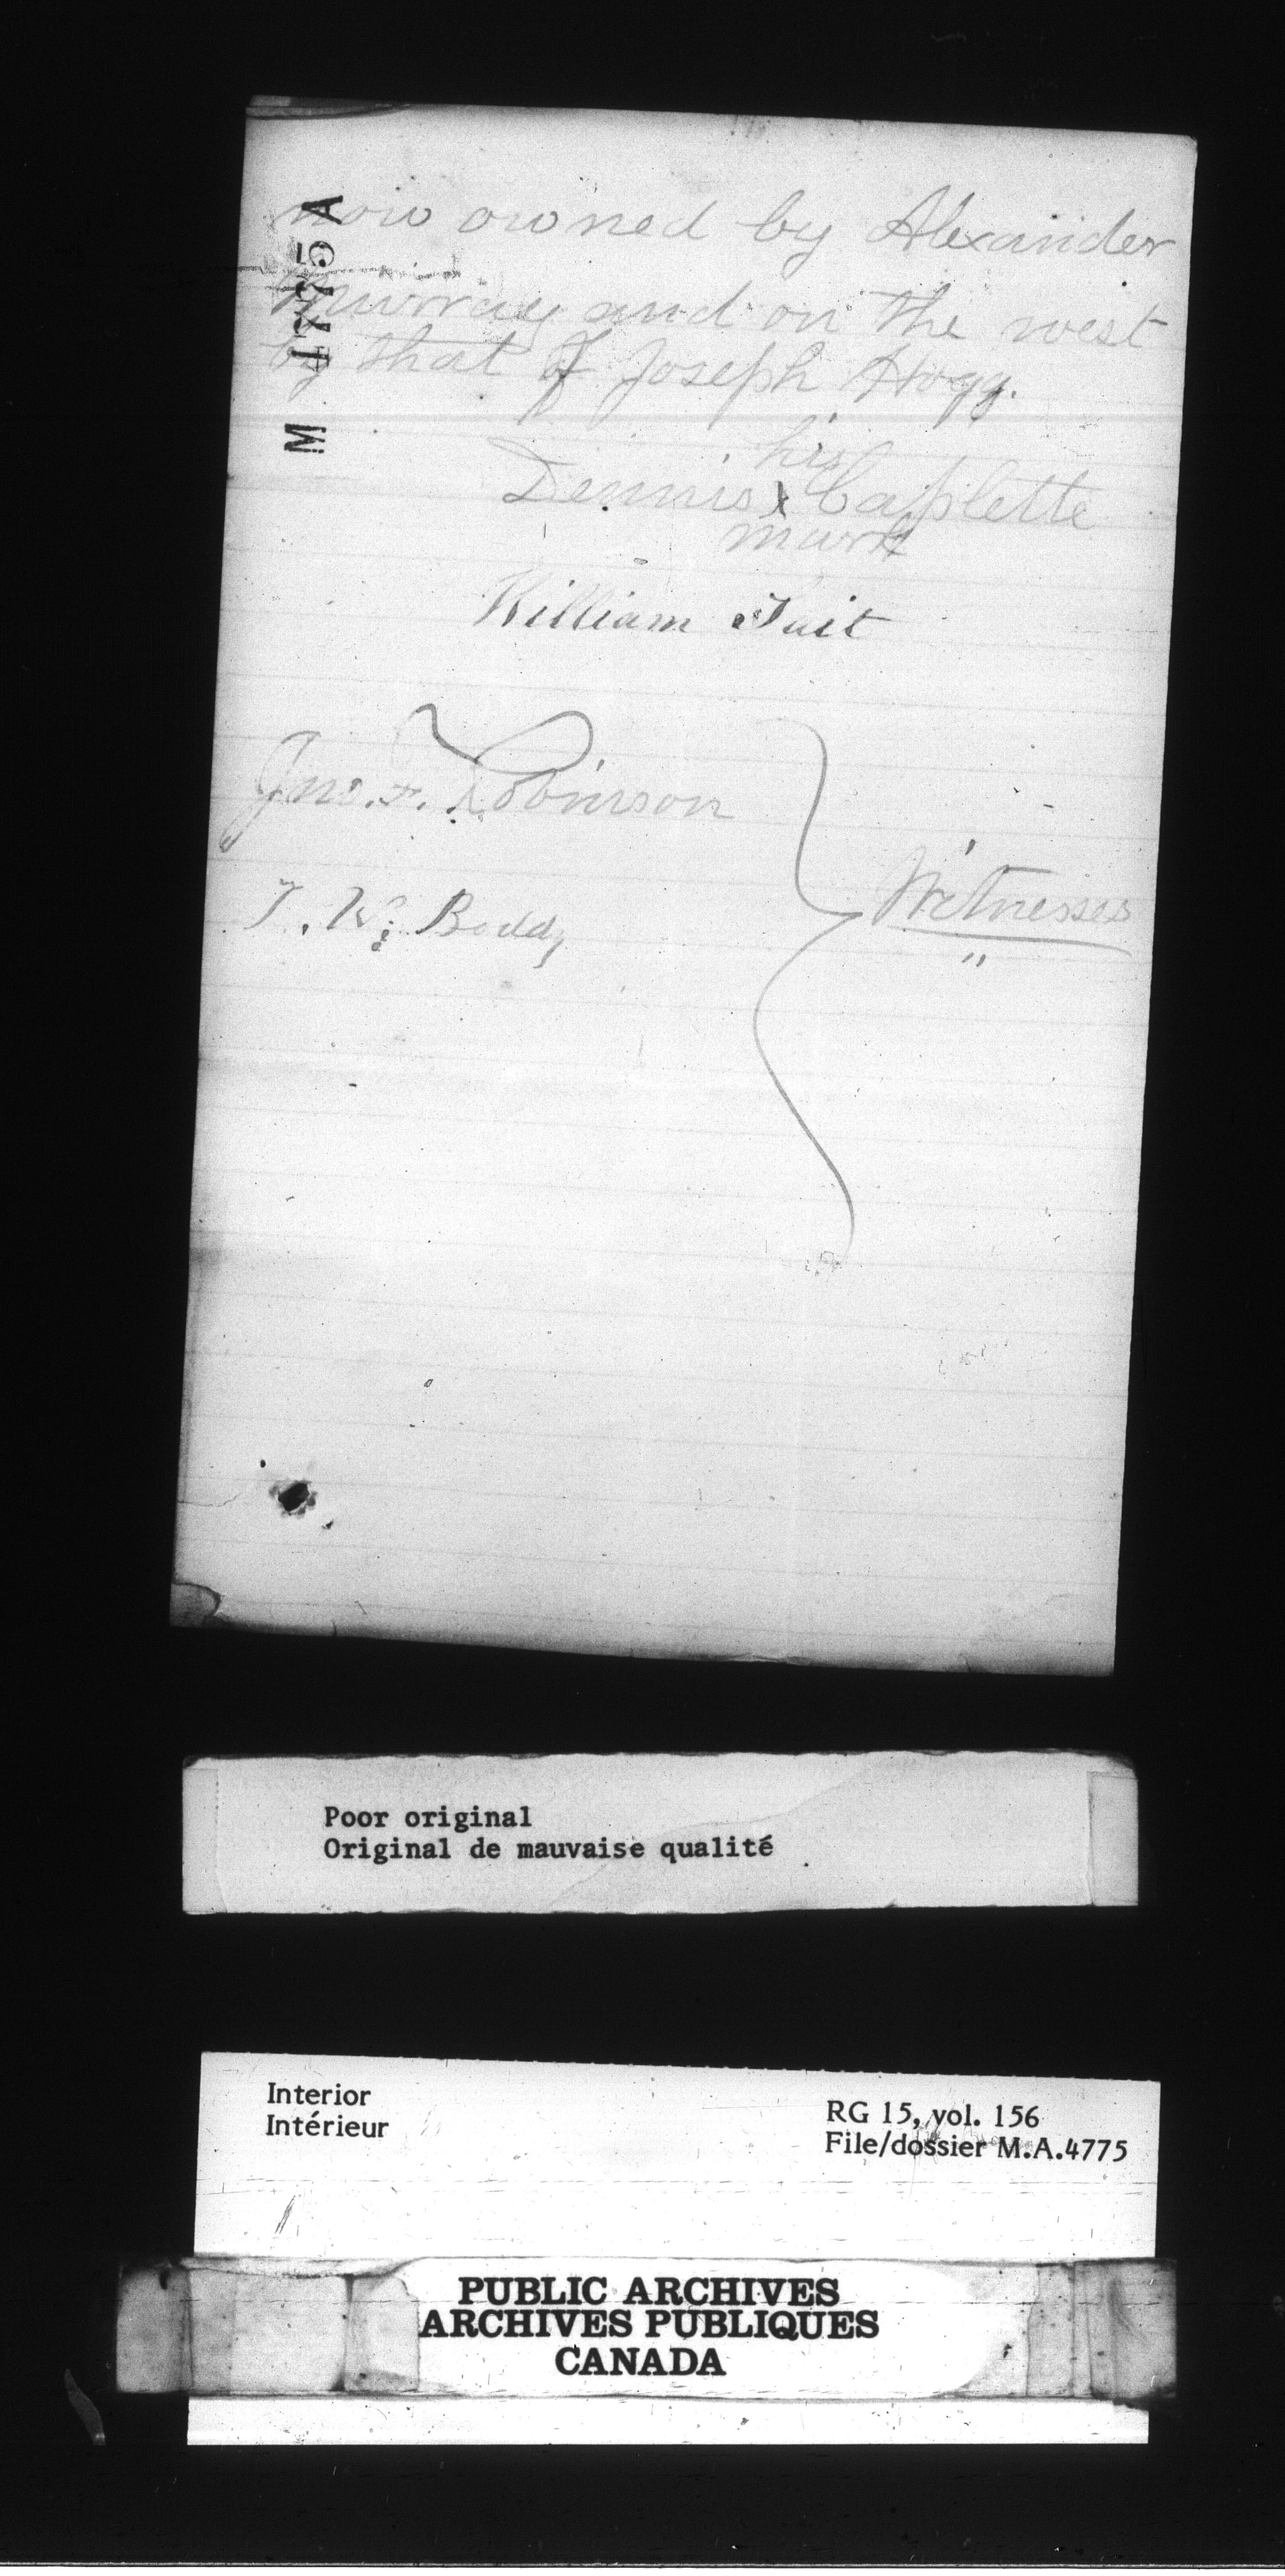 M 4775 A
now owned by Alexander
Murray and on the west
by that of Joseph Hogg.
his
Dennis X Caplette
mark
William Tait
Jno. F. Robinson
T. W. Boddy
Witnesses
"
Poor original
Original de mauvaise qualité
Interior
Intérieur
RG 15, vol. 156
File/dossier M.A.4775
PUBLIC ARCHIVES
ARCHIVES PUBLIQUES
CANADA